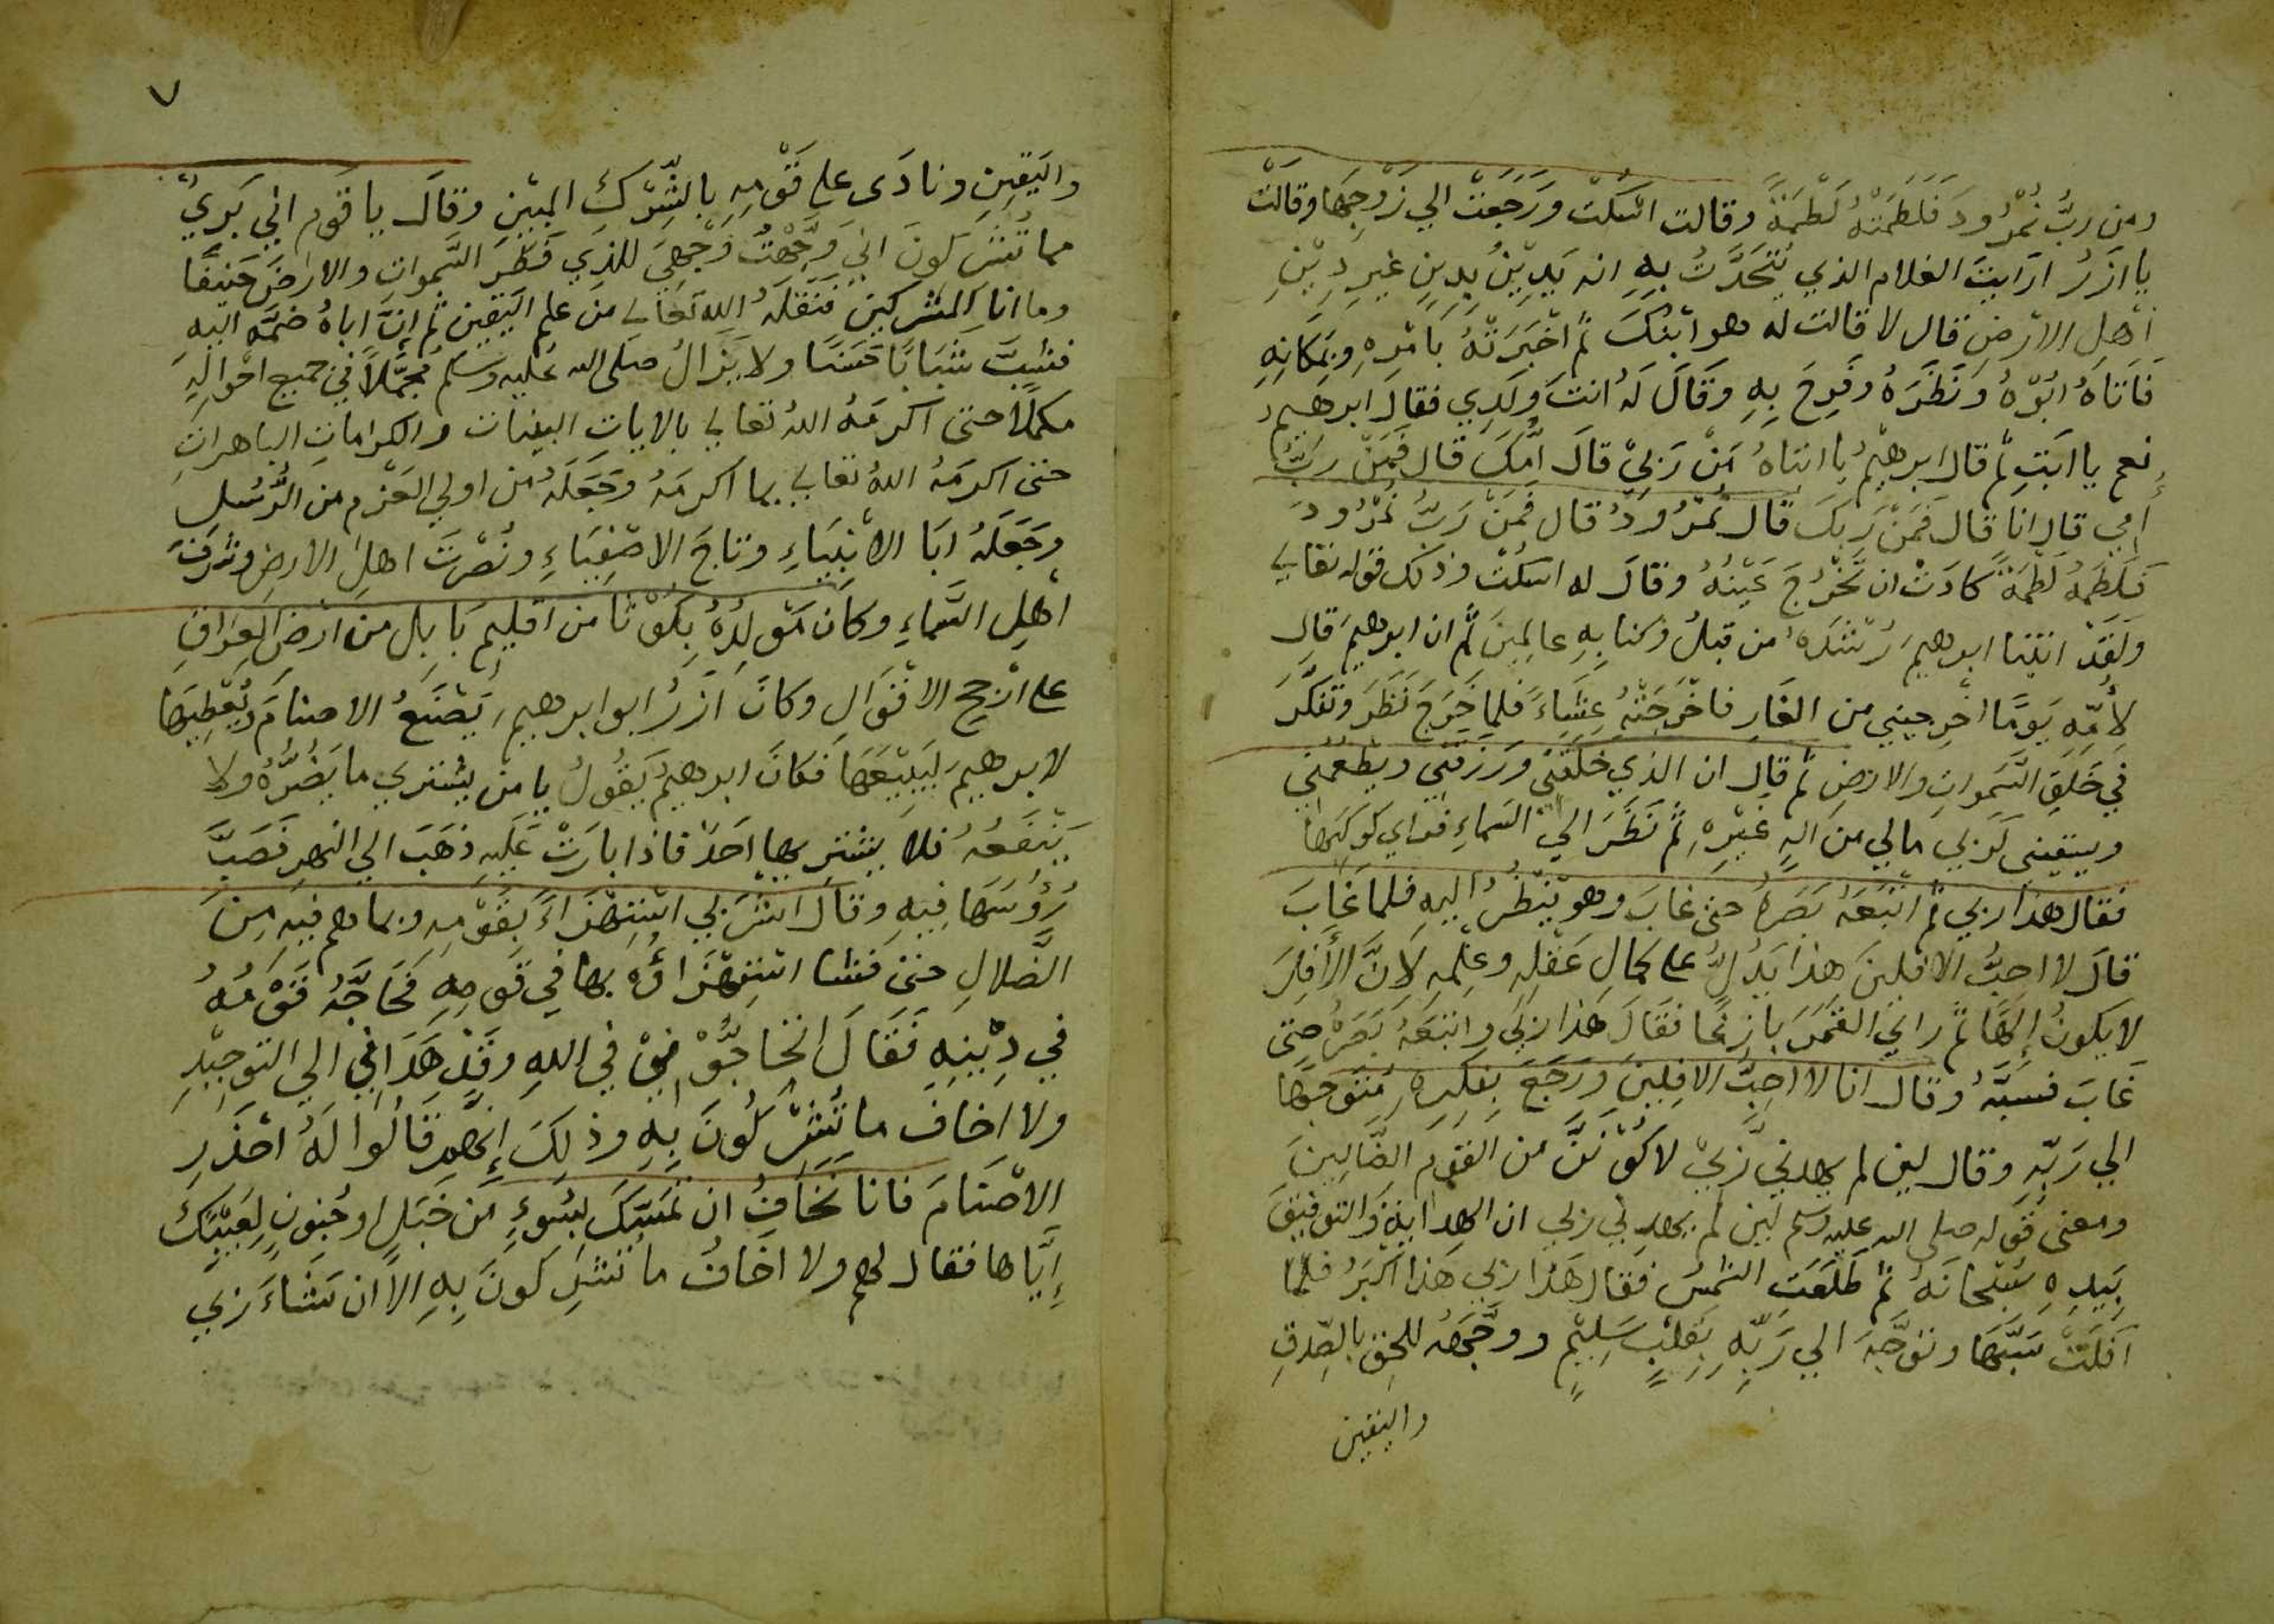 ومن ربُّ نمْرُودَ فَلَطَمَتْهُ لَطْمَةً وقالت اسْكت ورَجَعَتْ الي زَوْجِهَا وقالَتْ
يا ازَرُ ارَايتَ الغلام الذي يُتَحَدَّثُ بِهِ انه يَدِيْنُ بِدِينٍ غيرِ دِيْنِ
اهْلِ الارْضِ قال لا قالت له هو ابْنُكَ ثم اخْبَرَتْهُ بامْرِهِ وبمَكانِهِ
فَاتَاهُ ابُوْهُ ونَظَرَهُ وفَرِحَ بِهِ وقَالَ لَهُ انتَ وَلَدِي فقالَ ابرهيم
نعم يا ابَتِ ثم قال ابرهيمُ يا ابتاهُ مَنْ رَبِيْ قالَ امُّكَ قال فَمَنْ رَبُّ
أُمِي قال انا قالَ فَمَنْ رَبكَ قال نُمْرُودُ قال فَمَنْ رَبُّ نمْرُودَ
فَلَطَمَهُ لَطْمَةً كادَتْ ان تَخْرُجَ عَيْنُهُ وقالَ له اسكُتْ وذلك قوله تعالي
ولَقَدْ اتيْنا ابرهيمَ رُشْدَهُ من قبلُ وكنا بِهِ عالِمِينَ ثُم ان ابرهيمَ قال
لِأُمِّهِ يَومًا اخْرِجيني من الغَارِ فاخْرَجَتْهُ عِشَاءً فلما خَرَجَ نَظَرَ وتَفَكَّرَ
في خَلَقِ السَّمواتِ والارضِ ثم قال ان الذي خَلَقَنِي ورَزَقَنِي ويطْعُمني
ويسقيني لَرَبي مالي من الهٍ غَيْرِهْ ثمَّ نَظَرَ الي السماءِ فراي كوكبًا
فقال هذا ربي ثم اتْبَعَهُ بَصَرَهُ حتي غابَ وهو يَنْظُرُ اليهِ فلما غَابَ
قالَ لا احِبُّ الافلينَ هذا يَدُلُّ علي كمالِ عَقْلِهِ وعِلْمِهِ لانَّ الأفِلَ
لا يكونُ إلهًا ثم راي القَمَرَ بازغًا فقالَ هذا ربي واتبَعَهُ بَصَرَهُ حتي
غَابَ فسَبَّهُ وقال انا لا احِبُّ الافِلِينَ ورَجَعَ بفكرِهِ مُتَوَجِهًا
الي رَبِّهِ وقال لين لم يهدني رَّبيْ لاكُوْنَنَّ من القومِ الضَّالِينَ
ومعني قوله صلي الله عليه وسلم لين لم يهدني ربي ان الهدايةَ والتوفيقَ
بيَدِهِ سُبْحَانَهُ ثم طَلَعَت الشمسُ فقال هَذا ربي هَذا اكْبَرُ فلمَّا
افَلَتْ سَبَّهَا وتَوَجَّهَ الي رَبِّهِ بقَلْبٍ سَلِيْمٍ ووجَّهَهُ للحق بالصِّدقِ
واليقين
٧
واليَقِينِ ونادَى علي قَوْمِهِ بالشِّرْكِ المبيْنِ وقالَ يا قوم اني بَرِيٌ
مما تُشْرِكونَ اني وجَّهْتُ وَجْهِيَ للذي فَطَرَ السَّمواتِ والارضَ حَنيفًا
وما انا من المشركين فَنَقَلَهُ الله تعالي من علم اليَقِين ثم إنَّ اباهُ ضمَّه اليهِ
فشَبَّ شَبَابًا حَسَنًا ولا يَزَالُ صلي الله عليه وسلم مُجَمَّلاً في جميع احْوالِهِ
مكملاً حتي اكْرمَهُ اللهُ تعالي بالاياتِ البينات والكراماتِ الباهراتِ
حتي اكرمَهُ اللهُ تعالي بما اكرمَهُ وجَعَلَهُ من اولي العَزْم من الرُّسُلِ
وجَعَلَهُ ابَا الانْبِيَاءِ وتاجَ الاصْفِيَاءِ ونُصْرَتَ اهلِ الارضِ وشَرَفَ
اهْلِ السَّماءِ وكانَ مَوْلِدُهُ بِكَوْثا من اقليم بَابِل من ارْضِ العِرَاقِ
علي ارْجحِ الاقْوَالِ وكانَ ازَرُ ابو ابرهيم يَصْنَعُ الاصنامَ ويُعْطِيْهَا
لابرهيمَ لِيَبِيْعَهَا فكانَ ابرهيمُ يَقُولُ يا مَنْ يشتري ما يَضُرُّهُ ولا
يَنْفَعُهُ فلا يشتريها احَدٌ فاذا بارَتْ عَلَيهِ ذهَبَ الي النهرِ فصَبَّ
رُؤُسَهَا فِيهِ وقالَ اشْرَبي اسْتِهْزَاءً بقَوْمِهِ وبما هم فيهِ مِنَ
الضَّلالِ حتي فشا اسْتِهْزَاؤُهُ بها في قَومِهِ فحَاجَّهُ قَوْمُهُ
في دِيْنِهِ فَقَالَ اتحاجُّوْنِيْ في اللهِ وقَدْ هَدَانِي الي التوحِيْدِ
ولا اخافُ ما تُشْرِكُونَ بِهِ وذلِكَ إنَّهم قَالُوا لَهُ احْذَرِ
الاصْنَامَ فانا نَخَافُ ان تَمَسَّكَ بسُوءٍ من خَبَلٍ او جُنونٍ لِعَيْبِكَ
إيَّاها فقال لهم ولا اخافُ ما تُشْرِكونَ بِهِ الا ان يَشَاءَ ربي